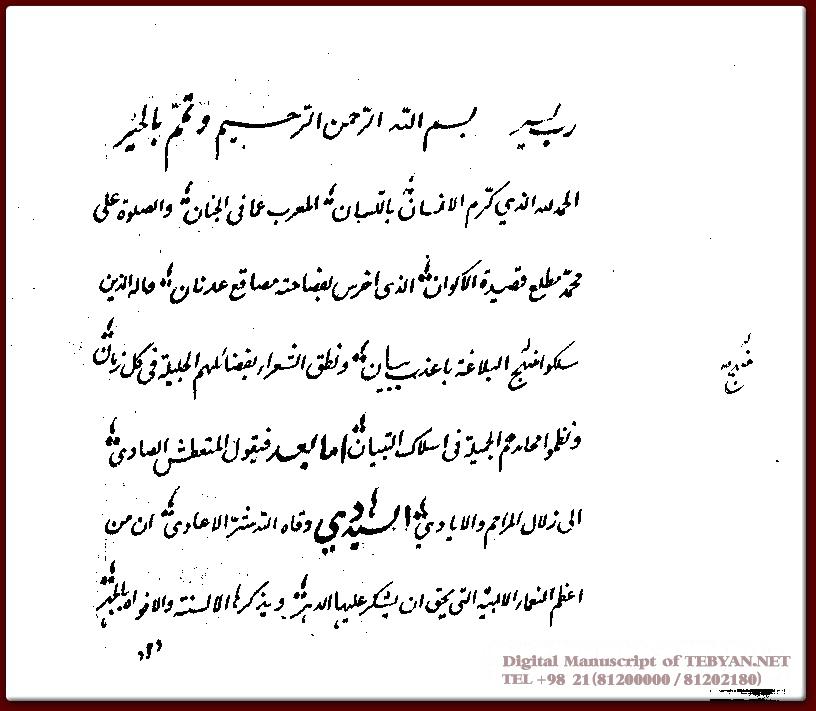 رب يسر بسم الله الرحمن الرحيم وتمم بالخير
الحمد لله الذي كرم الانسان باللسان المعرب عما في الجنان والصلوة على
محمد مطلع قصيدة الاكوان الذي اخرس بفصاحته مصاقع عدنان واله الذين
سلكوا منهج البلاغة باعذب بيان ونطق الشعراء بفضائلهم الجليلة في كل زمان
منهج
ونظموا محامدهم الجميلة في اسلاك التبيان اما بعد فيقول المتعطش الصادي
الى زلال المراحم والايادي السيد هادي وقاه الله شر الاعادي ان من
اعظم النعماء الالهية التي يحق ان يشكر عليها الدهر ويذكرها الالسنة والافواه بالخير
Digital Manuscript of TEBYAN.NET
TEL +98 21(81200000 / 81202180)